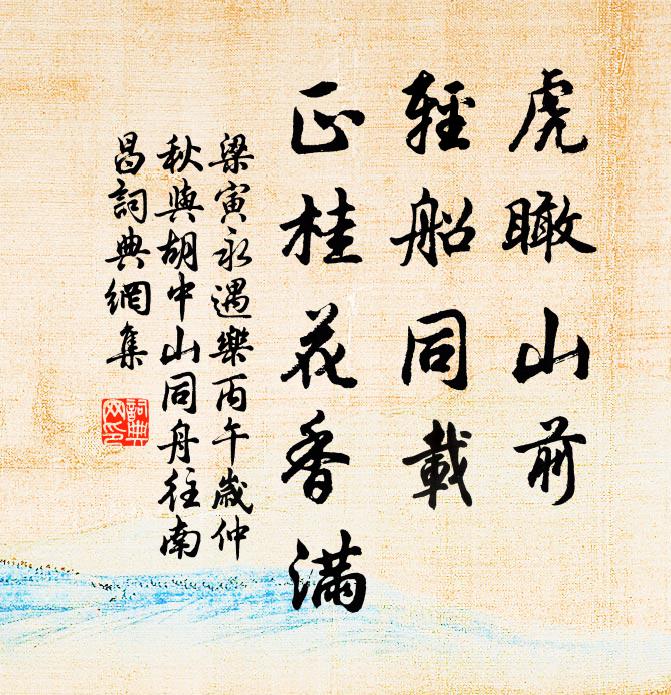 虎瞰山前
輕船同載
正桂花香滿
梁寅永遇樂丙午歲仲
秋與胡中山同舟往南
昌詞典網集
詞典
网印